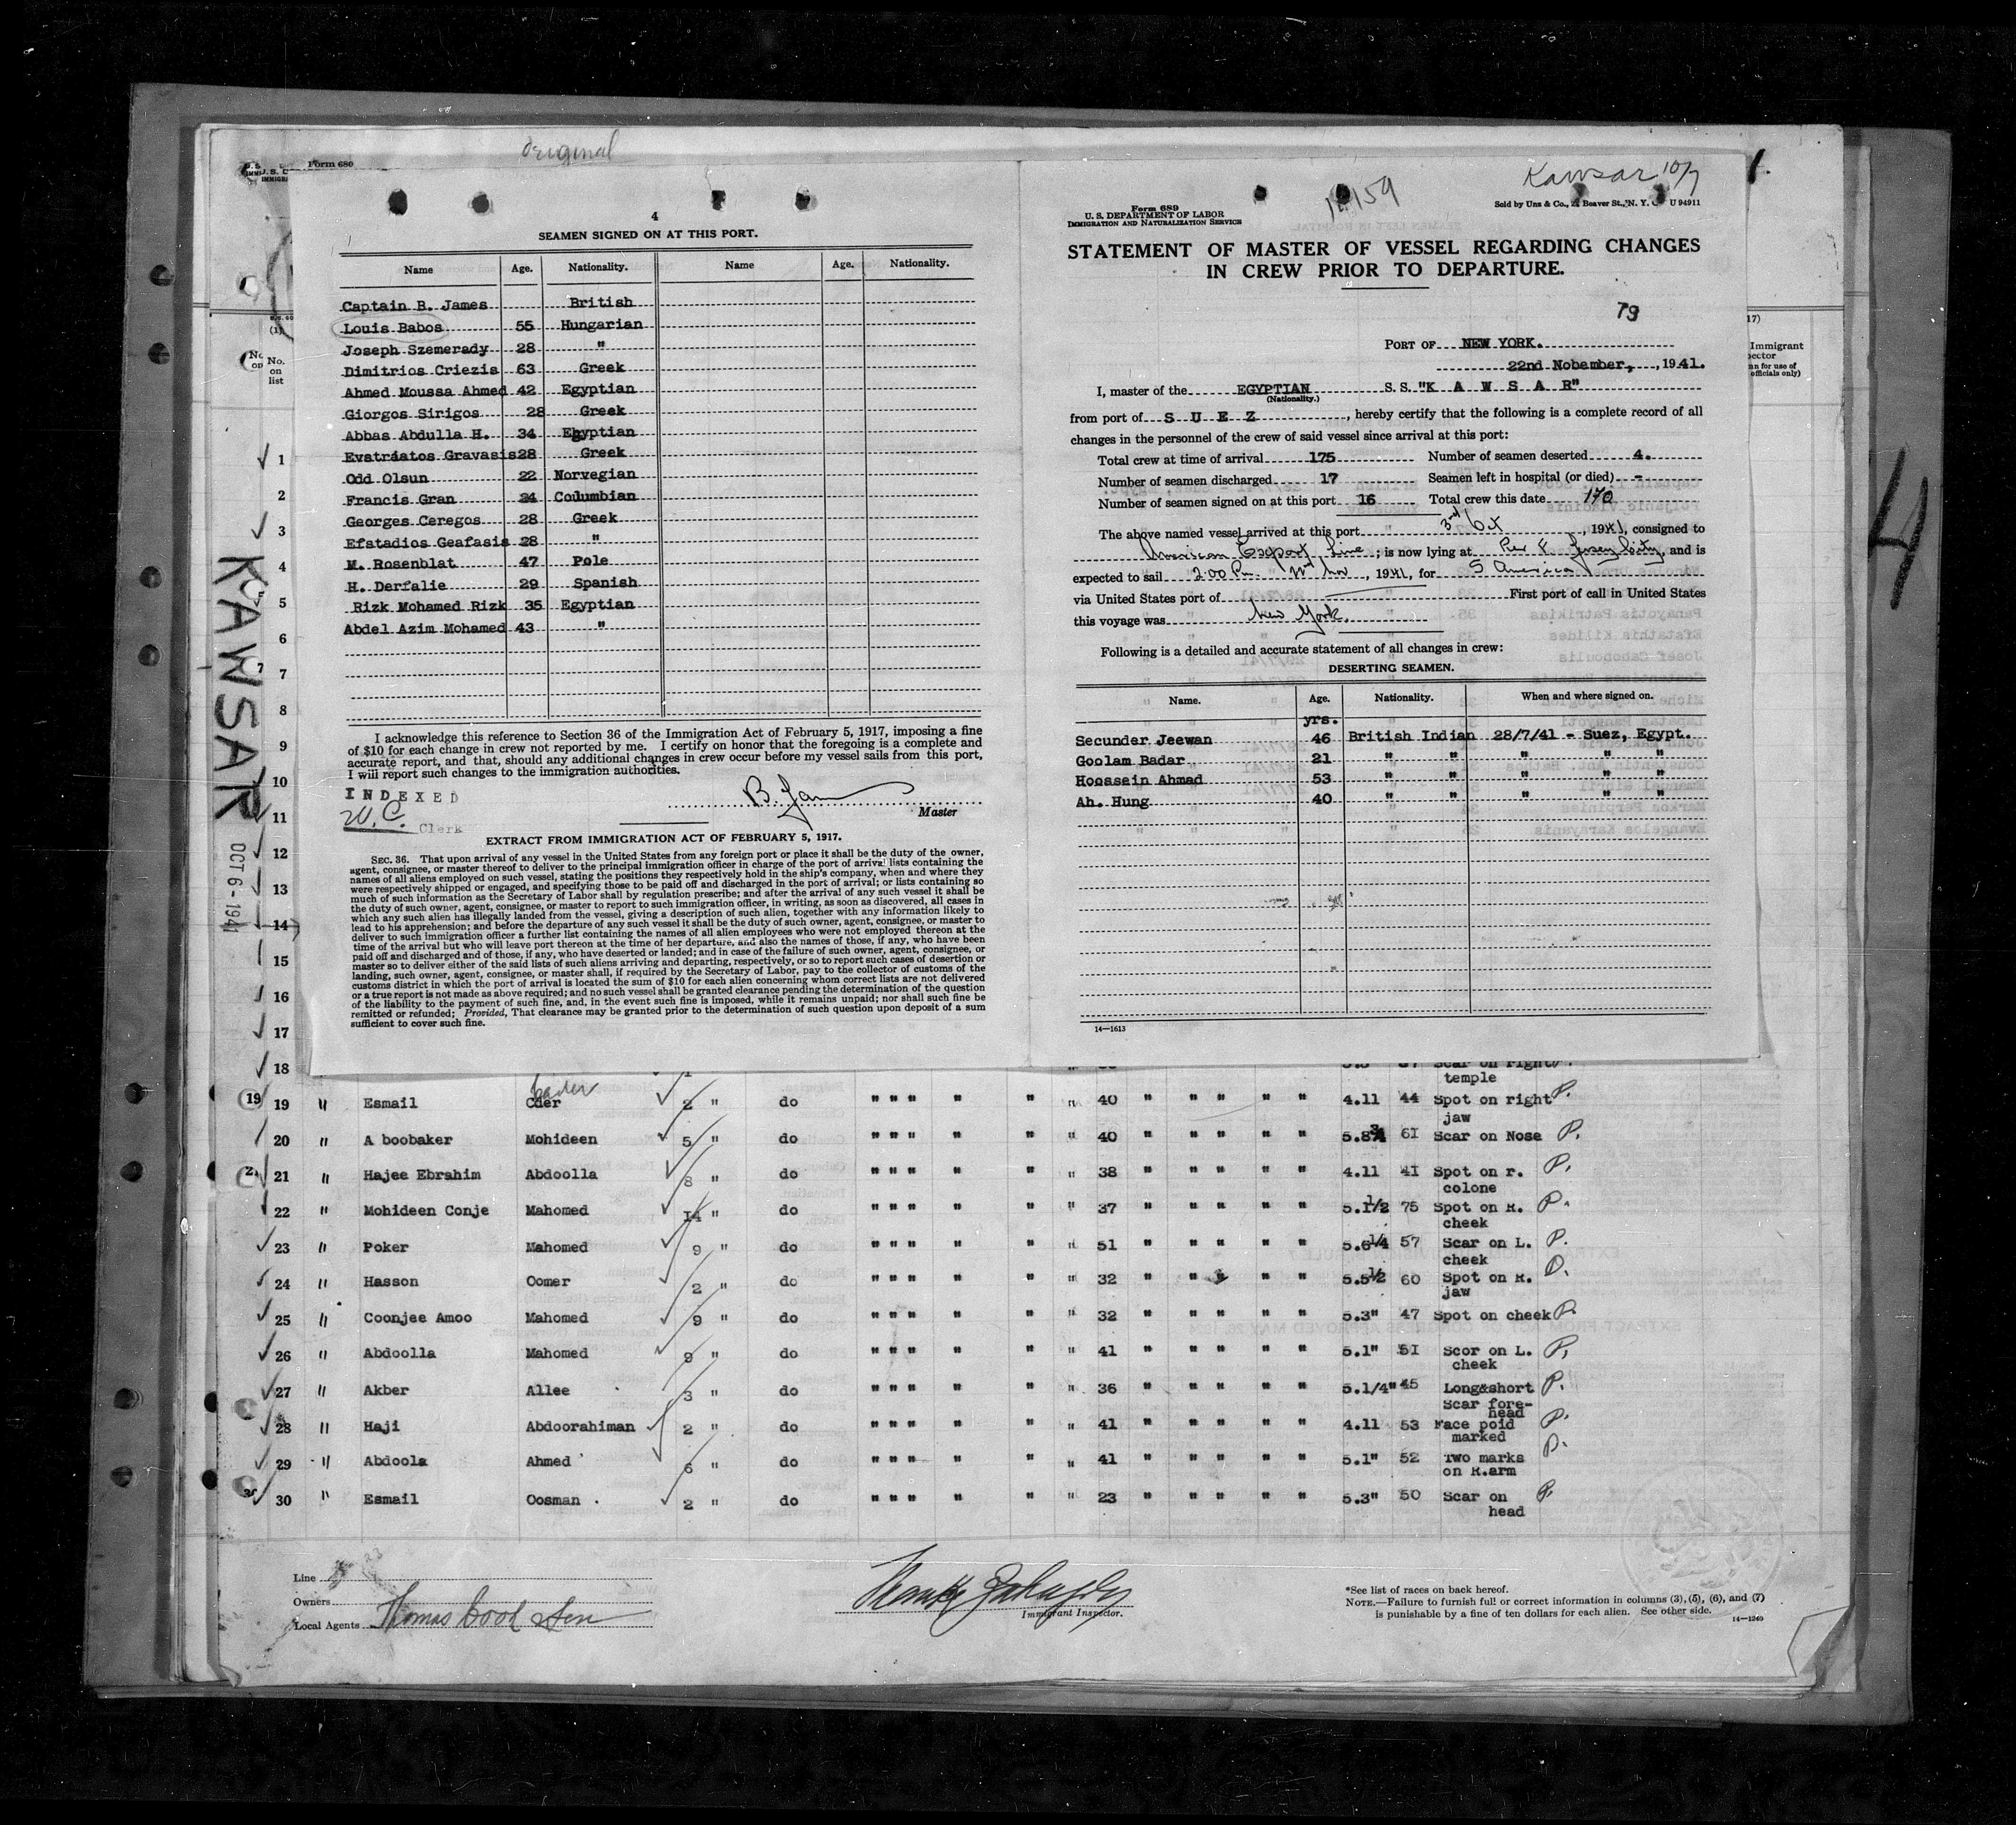 Original
Form 680
4
SEAMEN SIGNED ON AT THIS PORT.
Name Age. Nationality. Name Age. Nationality.
Captain B. James British
Louis Babos 55 Hungarian
Joseph Szemerady 28 "
Dimitrios Criezis 63 Greek
Ahmed Moussa Ahmed 42 Egyptian
Giorgos Sirigos 28 Greek
Abbas Abdulla H. 34 Egyptian
Evstratos Gravasis 28 Greek
Odd Olsun 22 Norvegian
Francis Gran 24 Columbian
Georges Ceregos 28 Greek
Efstadios Geafasis 28 "
M. Rosenblat 47 Pole
H. Derfalie 29 Spanish
Rizk Mohamed Rizk 35 Egyptian
Abdel Azim Mohamed 43 "
I acknowledge this reference to Section 36 of the Immigration Act of February 5, 1917, imposing a fine
of $10 for each change in crew not reported by me. I certify on honor that the foregoing is a complete and
accurate report, and that, should any additional changes in crew occur before my vessel sails from this port,
I will report such changes to the immigration authorities.
INDEXED
W. C. Clerk
B. Jam
Master
EXTRACT FROM IMMIGRATION ACT OF FEBRUARY 5, 1917.
SEC. 36. That upon arrival of any vessel in the United States from any foreign port or place it shall be the duty of the owner,
agent, consignee, or master thereof to deliver to the principal immigration officer in charge of the port of arrival lists containing the
names of all aliens employed on such vessel, stating the positions they respectively hold in the ship's company, when and where they
were respectively shipped or engaged, and specifying those to be paid off and discharged in the port of arrival; or lists containing so
much of such information as the Secretary of Labor shall by regulation prescribe; and after the arrival of any such vessel it shall be
the duty of such owner, agent, consignee, or master to report to such immigration officer, in writing, as soon as discovered, all cases in
which any such alien has illegally landed from the vessel, giving a description of such alien, together with any information likely to
lead to his apprehension; and before the departure of any such vessel it shall be the duty of such owner, agent, consignee, or master to
deliver to such immigration officer a further list containing the names of all alien employees who were not employed thereon at the
time of the arrival but who will leave port thereon at the time of her departure, and also the names of those, if any, who have been
paid off and discharged and of those, if any, who have deserted or landed; and in case of the failure of such owner, agent, consignee, or
master so to deliver either of the said lists of such aliens arriving and departing, respectively, or so to report such cases of desertion or
landing, such owner, agent, consignee, or master shall, if required by the Secretary of Labor, pay to the collector of customs of the
customs district in which the port of arrival is located the sum of $10 for each alien concerning whom correct lists are not delivered
or a true report is not made as above required; and no such vessel shall be granted clearance pending the determination of the question
of the liability to the payment of such fine, and, in the event such fine is imposed, while it remains unpaid; nor shall such fine be
remitted or refunded; Provided, That clearance may be granted prior to the determination of such question upon deposit of a sum
sufficient to cover such fine.
Kawsar 10/7
Form 689
U. S. DEPARTMENT OF LABOR
IMMIGRATION AND NATURALIZATION SERVICE
Sold by Unz & Co., Beaver St., N. Y. U 94911
STATEMENT OF MASTER OF VESSEL REGARDING CHANGES
IN CREW PRIOR TO DEPARTURE.
79
PORT OF NEW YORK.
22nd Nobember, , 1941.
I, master of the EGYPTIAN S. S. "K A W S A R"
(Nationality.)
from port of S U E Z , hereby certify that the following is a complete record of all
changes in the personnel of the crew of said vessel since arrival at this port:
Total crew at time of arrival 175 Number of seamen deserted 4.
Number of seamen discharged 17 Seamen left in hospital (or died) -
Number of seamen signed on at this port 16 Total crew this date 170
The above named vessel arrived at this port 3rd Oct , 1941, consigned to
American Export Line ; is now lying at Pier F Jersey City, and is
expected to sail 2.00 Pm. 22nd Nov , 1941, for S America
via United States port of First port of call in United States
this voyage was New York.
Following is a detailed and accurate statement of all changes in crew:
DESERTING SEAMEN.
Name. Age. Nationality. When and where signed on.
yrs.
Secunder Jeewan 46 British Indian 28/7/41 - Suez, Egypt.
Goolam Badar 21 " " " " "
Hoossein Ahmad 53 " " " " "
Ah. Hung 40 " " " " "
14—1613
4
KAWSAR
OCT 6 - 1941
No. on list
Immigrant
officials only)
1
2
3
4
5
6
7
8
9
10
11
12
13
14
15
16
17
18 Scar on right temple
19 " Esmail Cder Kader 2 " do " " " " " " 40 " " " " " 4.11 44 Spot on right jaw P.
20 " A boobaker Mohideen 5 " do " " " " " " 40 " " " " " 5.8¾ 61 Scar on Nose P.
21 " Hajee Ebrahim Abdoolla 8 " do " " " " " " 38 " " " " " 4.11 41 Spot on r. colone P.
22 " Mohideen Conje Mahomed 14 " do " " " " " " 37 " " " " " 5.1/2 75 Spot on R. cheek P.
23 " Poker Mahomed 9 " do " " " " " " 51 " " " " " 5.6¼ 57 Scar on L. cheek P.
24 " Hasson Oomer 2 " do " " " " " " 32 " " " " " 5.5½ 60 Spot on R. jaw P.
25 " Coonjee Amoo Mahomed 9 " do " " " " " " 32 " " " " " 5.3" 47 Spot on cheek P.
26 " Abdoolla Mahomed 9 " do " " " " " " 41 " " " " " 5.1" 51 Scor on L. cheek P.
27 " Akber Allee 3 " do " " " " " " 36 " " " " " 5.1/4" 45 Long&short Scar fore-head P.
28 " Haji Abdoorahiman 2 " do " " " " " " 41 " " " " " 4.11 53 Face poid marked P.
29 " Abdoola Ahmed 6 " do " " " " " " 41 " " " " " 5.1" 52 Two marks on R.arm P.
30 " Esmail Oosman . 2 " do " " " " " " 23 " " " " " 5.3" 50 Scar on head P.
Line
Owners
Local Agents Thomas Cook & Son
Immigrant Inspector.
*See list of races on back hereof.
NOTE.—Failure to furnish full or correct information in columns (3), (5), (6), and (7)
is punishable by a fine of ten dollars for each alien. See other side.
14—1240